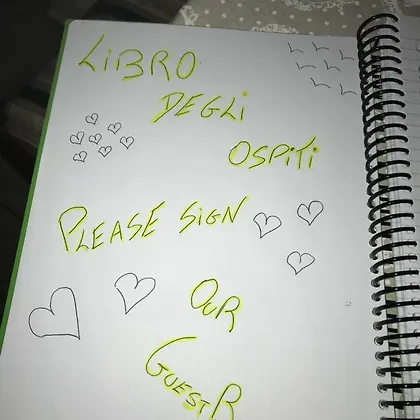 LiBRO
DEGLi
OSPiTi
PLEASE SiGN
OUR
GUESTR